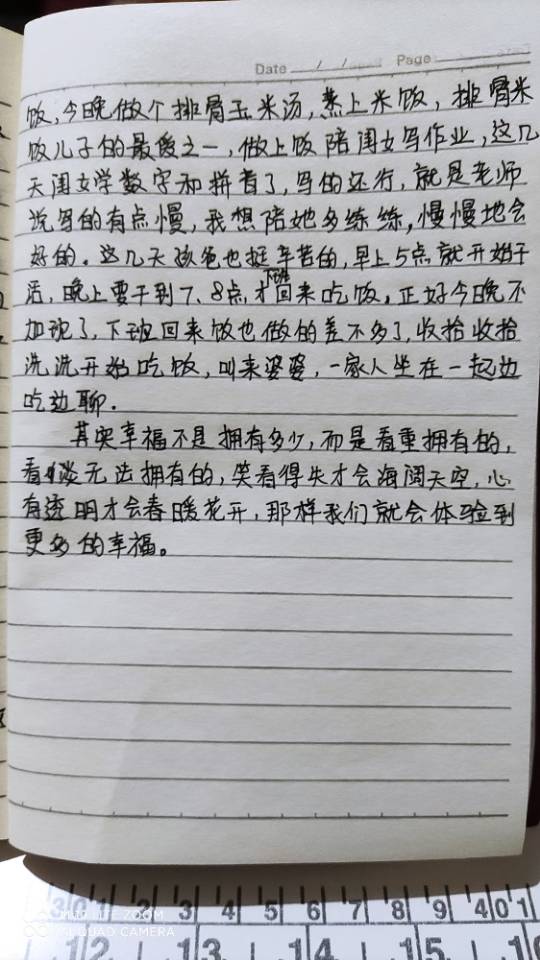 Date / / Page
饭,今晚做个排骨玉米汤,蒸上米饭,排骨米
饭儿子的最爱之一,做上饭陪闺女写作业,这几
天闺女学数字和拼音了,写的还行,就是老师
说写的有点慢,我想陪她多练练,慢慢地会
好的。这几天孩爸也挺辛苦的,早上5点就开始干
活,晚上要干到7、8点,才下班回来吃饭。正好今晚不
加班了,下班回来饭也做的差不多了,收拾收拾
洗洗开始吃饭,叫来婆婆,一家人坐在一起边
吃边聊.
其实幸福不是拥有多少,而是看重拥有的,
看淡无法拥有的,笑看得失才会海阔天空,心
有透明才会春暖花开,那样我们就会体验到
更多的幸福。
3 0 1 2 3 4 5 6 7 8 9 4 0 1
LIFE ZOOM
QUAD CAMERA
12 13 14 15